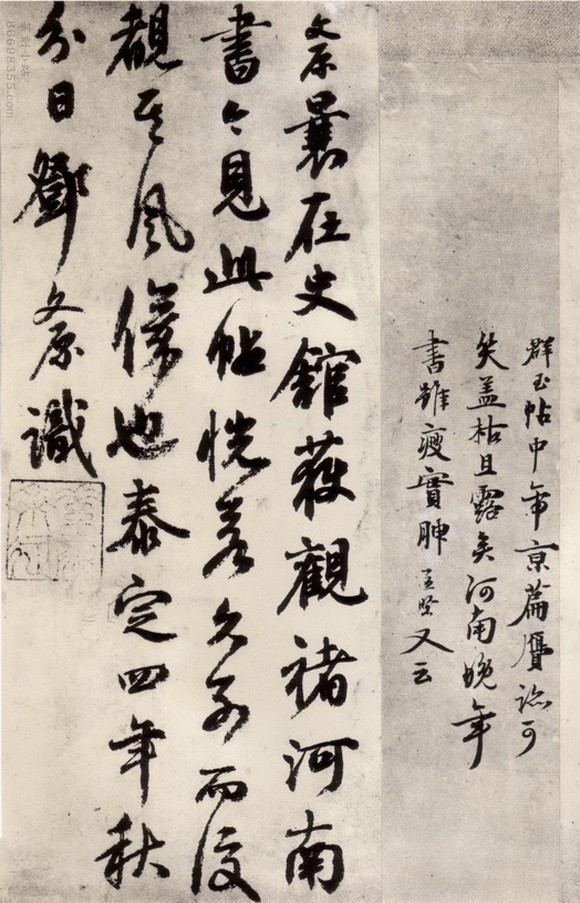 群玉帖中帝京篇贋跡可
笑盖枯且露矣河南晚年
書雖瘦實腴孟堅又云
文原曩在史館獲觀褚河南
書今見此帖恍若久別而復
覩其風儀也泰定四年秋
分日鄧文原識
86698355.com